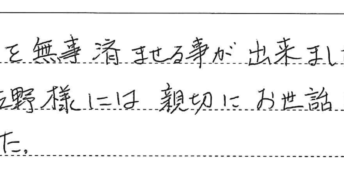 を無事済ませる事が出来まし
野様には 親切にお世話
た.